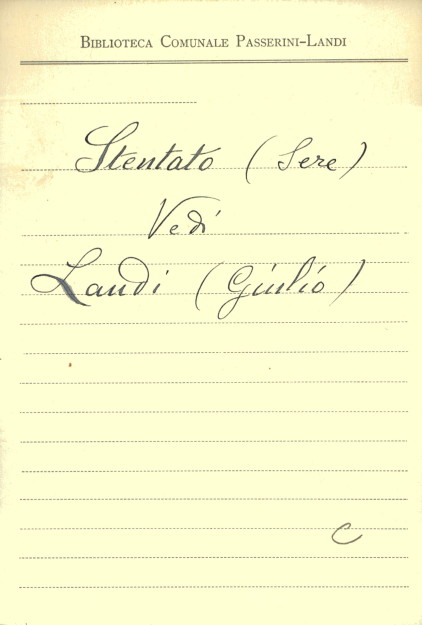 BIBLIOTECA COMUNALE PASSERINI-LANDI
Stentato (Sere)
Vedi
Landi (Giulio)
C